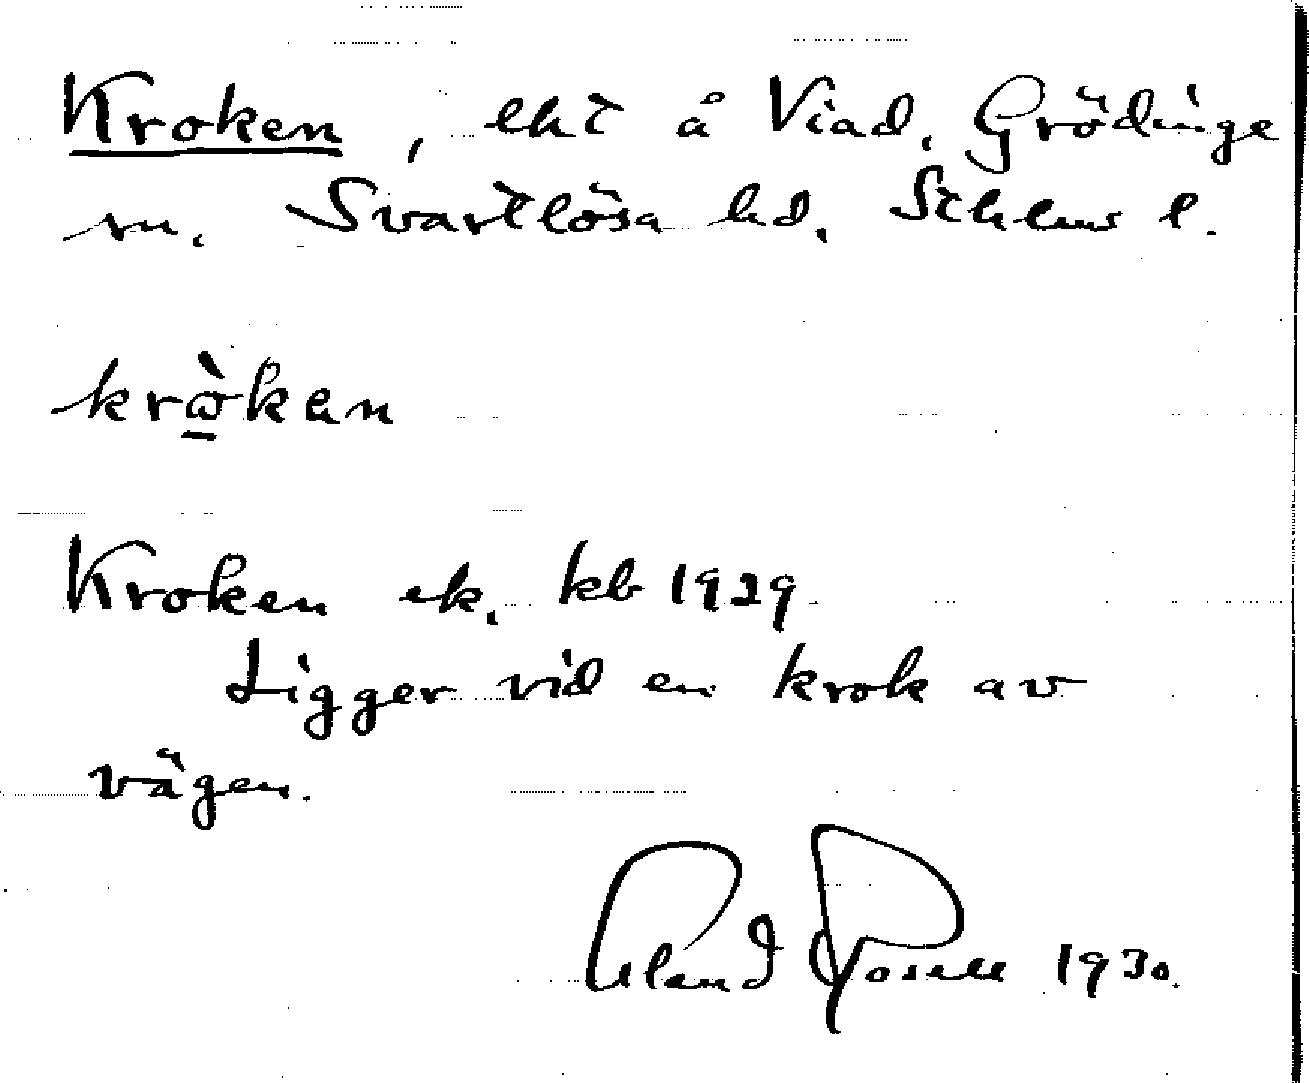 Kroken, lht å Viad, Grödinge
sn. Svartlösa hd, Sthlms l.
krὼ̱kan
Kroken ek. kb 1929
Ligger vid en krok av
vägen.
Erland Rosell 1930.